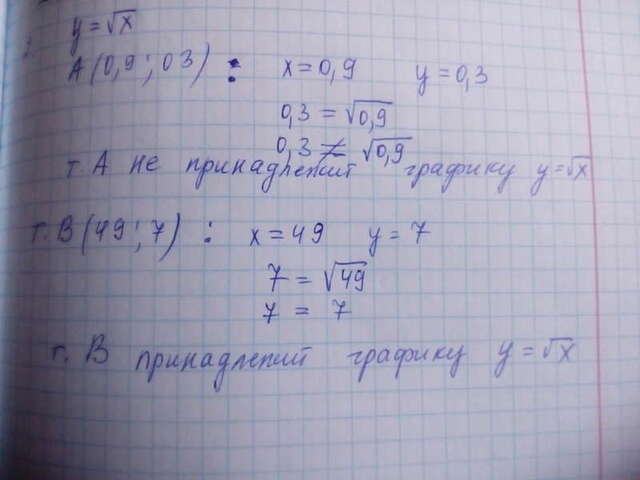 y = √x
A (0,9 ; 0 3) : x = 0,9 y = 0,3
0,3 = √0,9
0,3 ≠ √0,9
т. A не принадлежит графику y = √x
т. B (49 ; 7) : x = 49 y = 7
7 = √49
7 = 7
т. B принадлежит графику y = √x